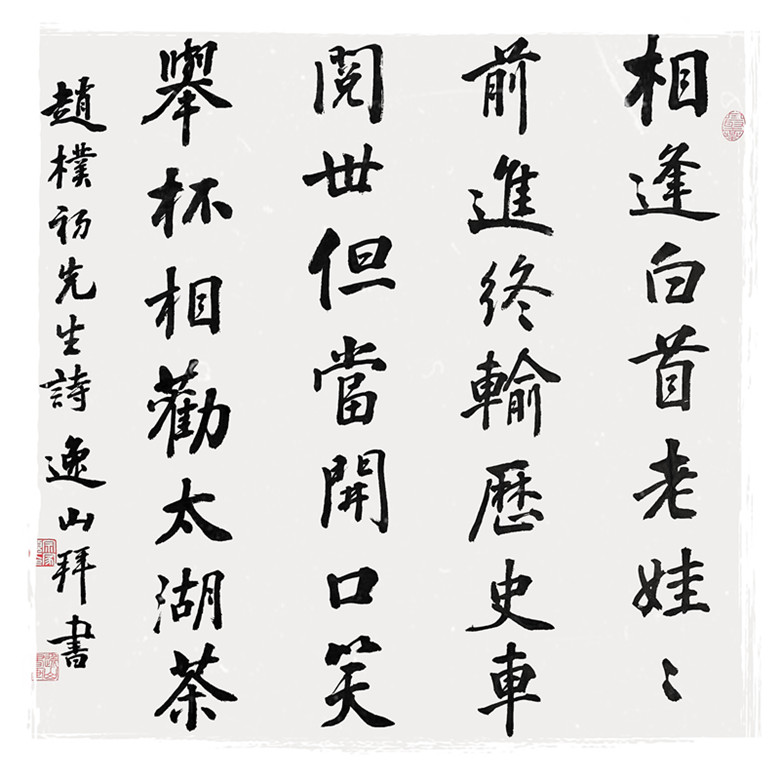 相逢白首老娃〻
前進終輸歷史車
閱世但當開口笑
舉杯相勸太湖茶
趙樸初先生詩 逸山拜書